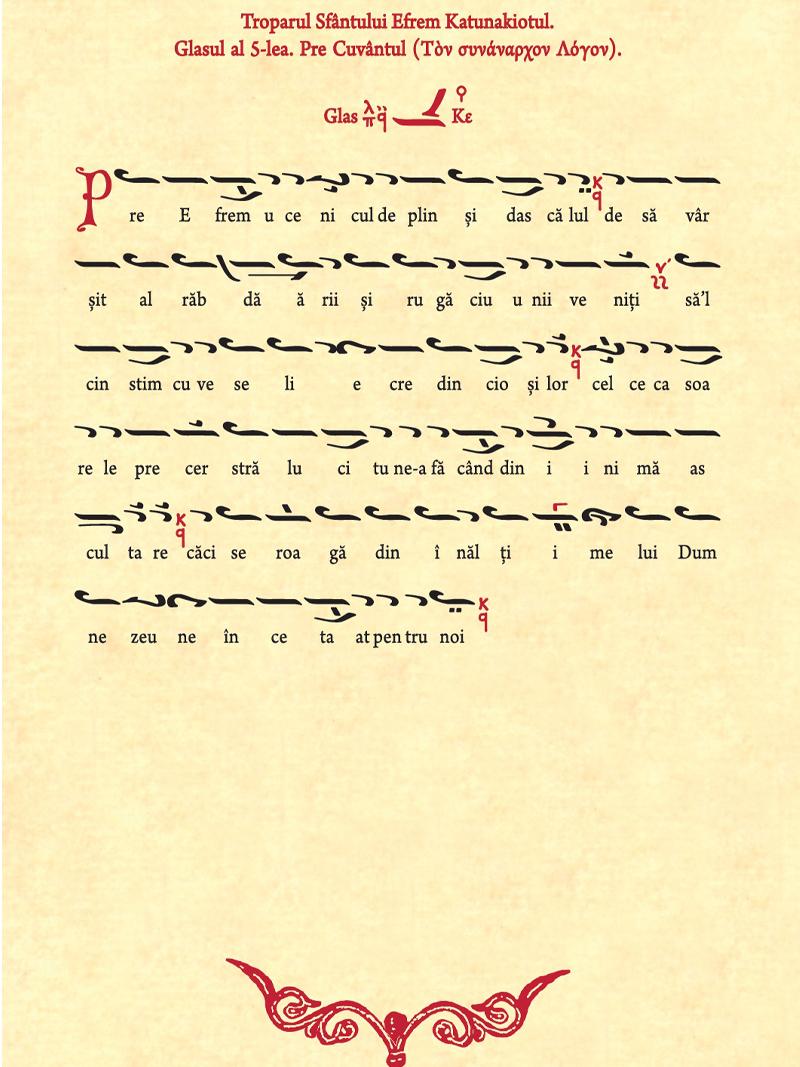 Troparul Sfântului Efrem Katunakiotul.
Glasul al 5-lea. Pre Cuvântul (Τὸν συνάναρχον Λόγον).
Glas λ π q Κε
P re E frem u ce ni cul de plin și das că lul de să vâr
șit al răb dă ă rii și ru gă ciu u nii ve niți să'l
cin stim cu ve se li e cre din cio și lor cel ce ca soa
re le pre cer stră lu ci tu ne-a fă când din i i ni mă as
cul ta re căci se roa gă din î năl ți i me lui Dum
ne zeu ne în ce ta at pen tru noi